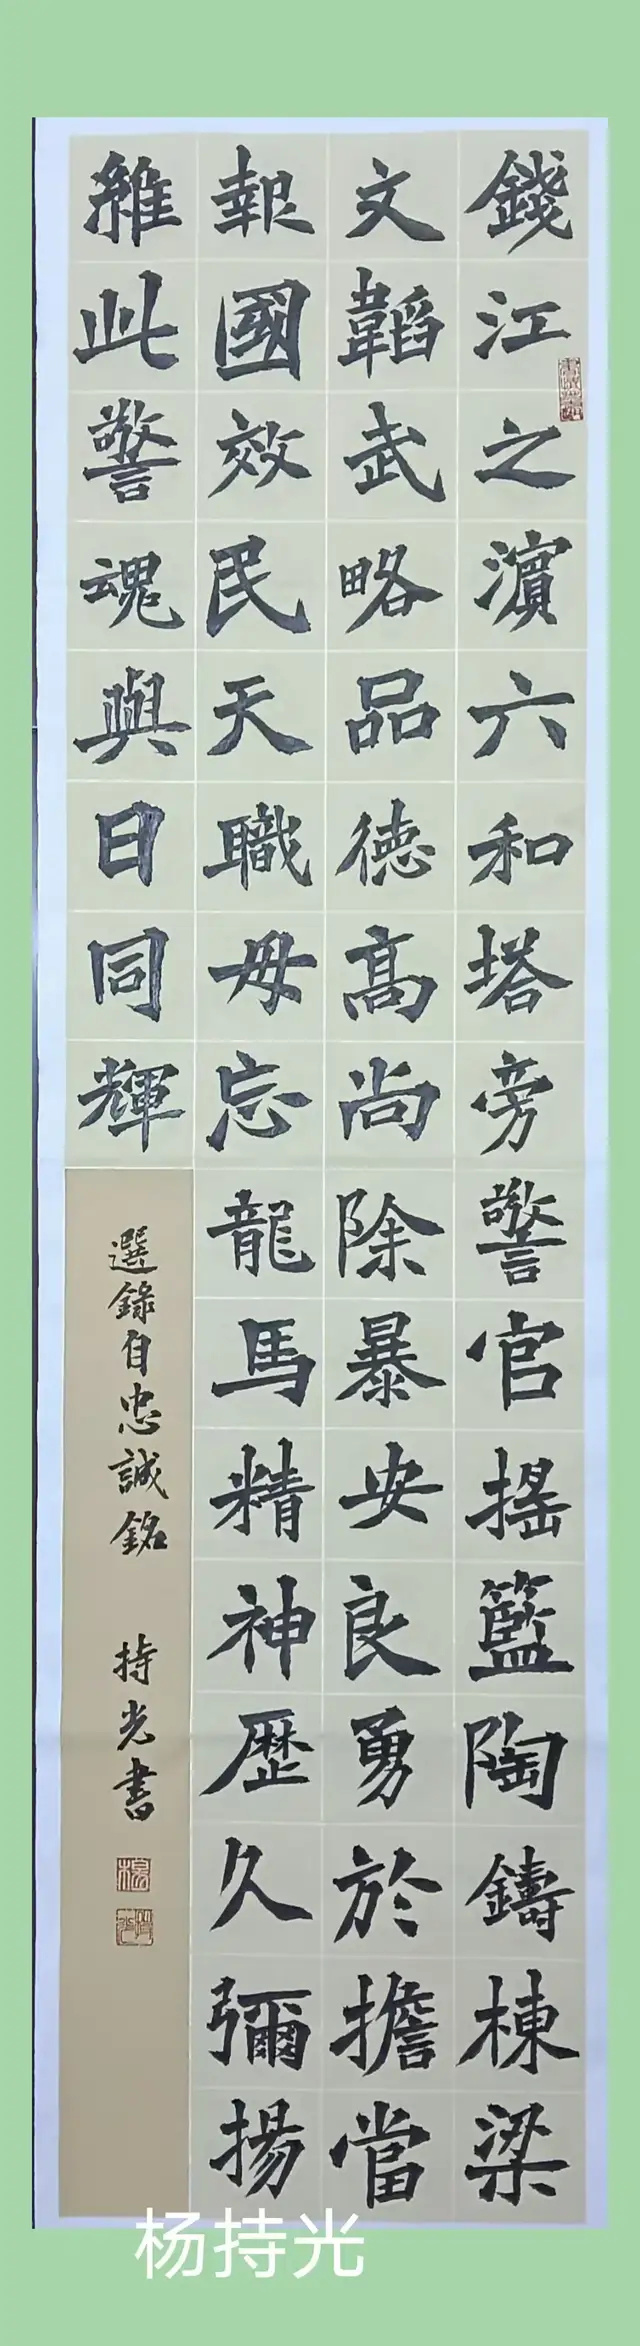 錢江之濵六和塔旁警官搖籃陶鑄棟梁
文韜武略品德高尚除暴安良勇於擔當
報國效民天職毋忘龍馬精神歷久彌揚
維此警魂與日同輝
選錄自忠誠銘 持光書
杨持光